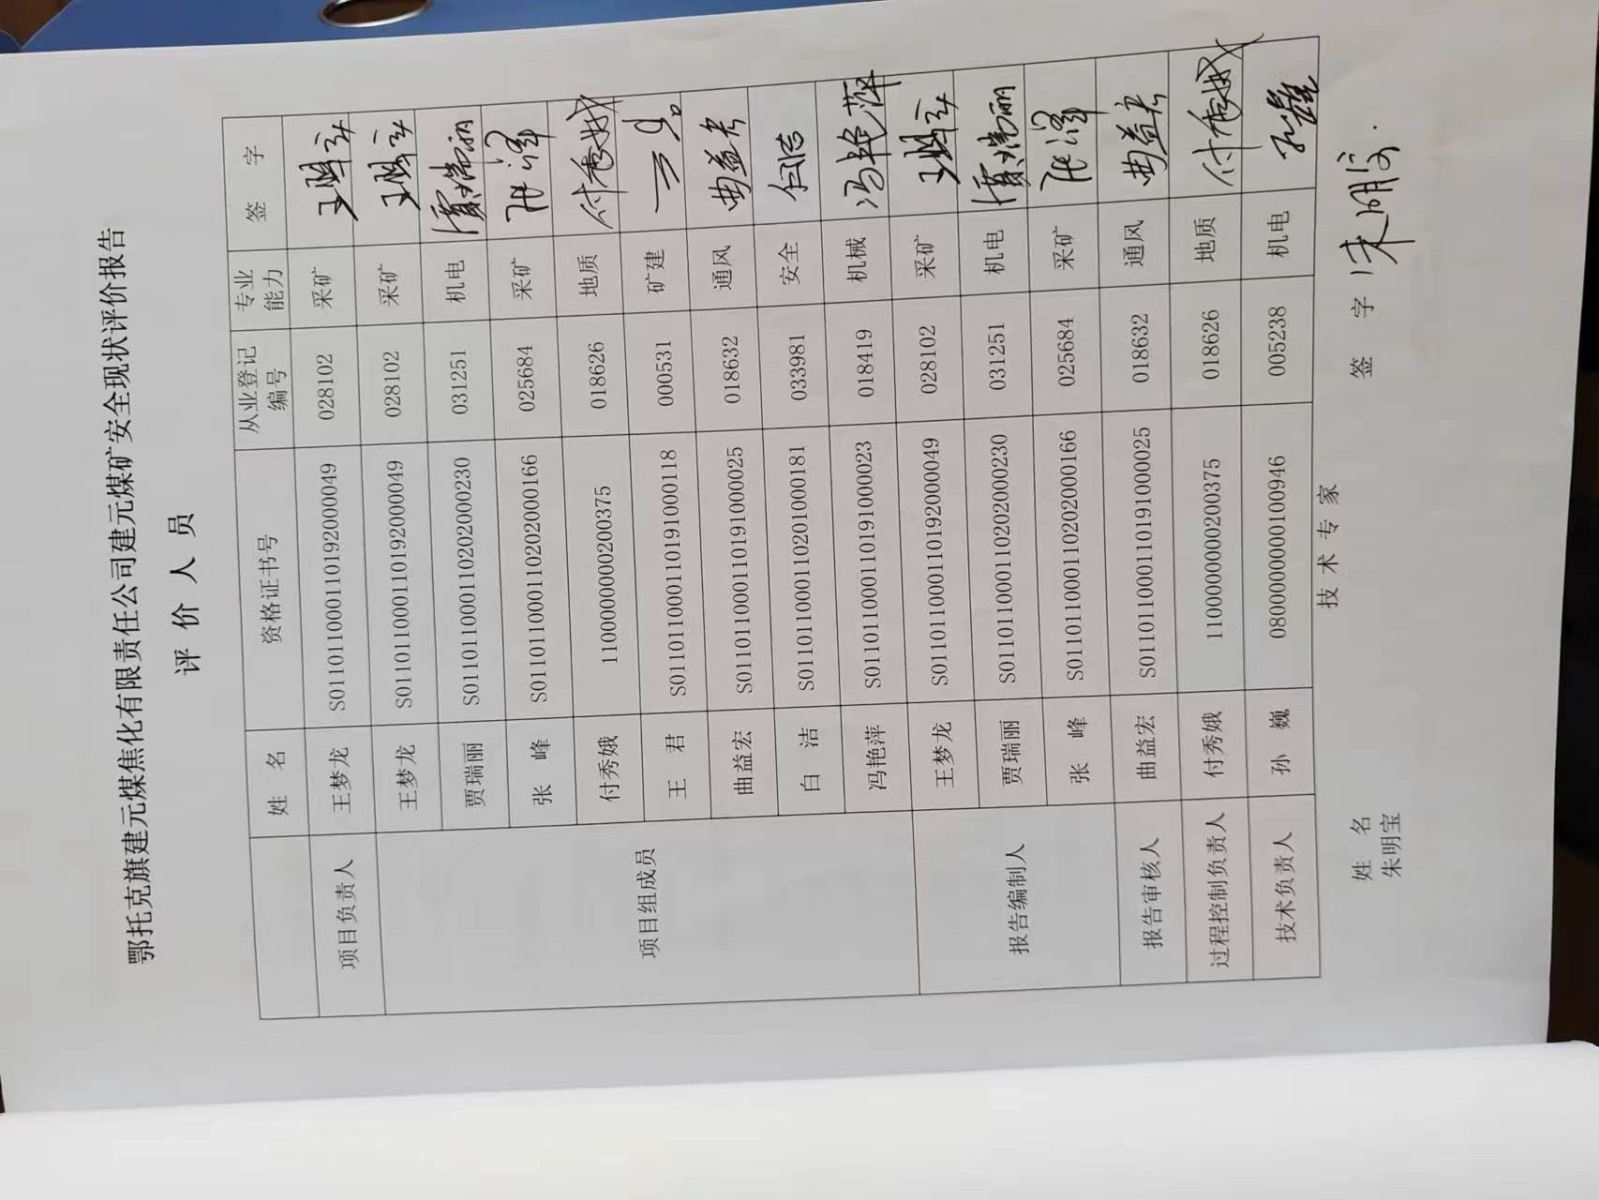 鄂托克旗建元煤焦化有限责任公司建元煤矿安全现状评价报告
评 价 人 员
姓 名 资格证书号 从业登记编号 专业能力 签 字
项目负责人 王梦龙 S011011000110192000049 028102 采矿 王梦龙
项目组成员 王梦龙 S011011000110192000049 028102 采矿 王梦龙
贾瑞丽 S011011000110202000230 031251 机电 贾瑞丽
张 峰 S011011000110202000166 025684 采矿 张峰
付秀娥 1100000000200375 018626 地质 付秀娥
王 君 S011011000110191000118 000531 矿建 王君
曲益宏 S011011000110191000025 018632 通风 曲益宏
白 洁 S011011000110201000181 033981 安全 白洁
冯艳萍 S011011000110191000023 018419 机械 冯艳萍
报告编制人 王梦龙 S011011000110192000049 028102 采矿 王梦龙
贾瑞丽 S011011000110202000230 031251 机电 贾瑞丽
张 峰 S011011000110202000166 025684 采矿 张峰
报告审核人 曲益宏 S011011000110191000025 018632 通风 曲益宏
过程控制负责人 付秀娥 1100000000200375 018626 地质 付秀娥
技术负责人 孙 巍 0800000000100946 005238 机电 孙巍
技 术 专 家
姓 名 签 字 朱明宝
朱明宝